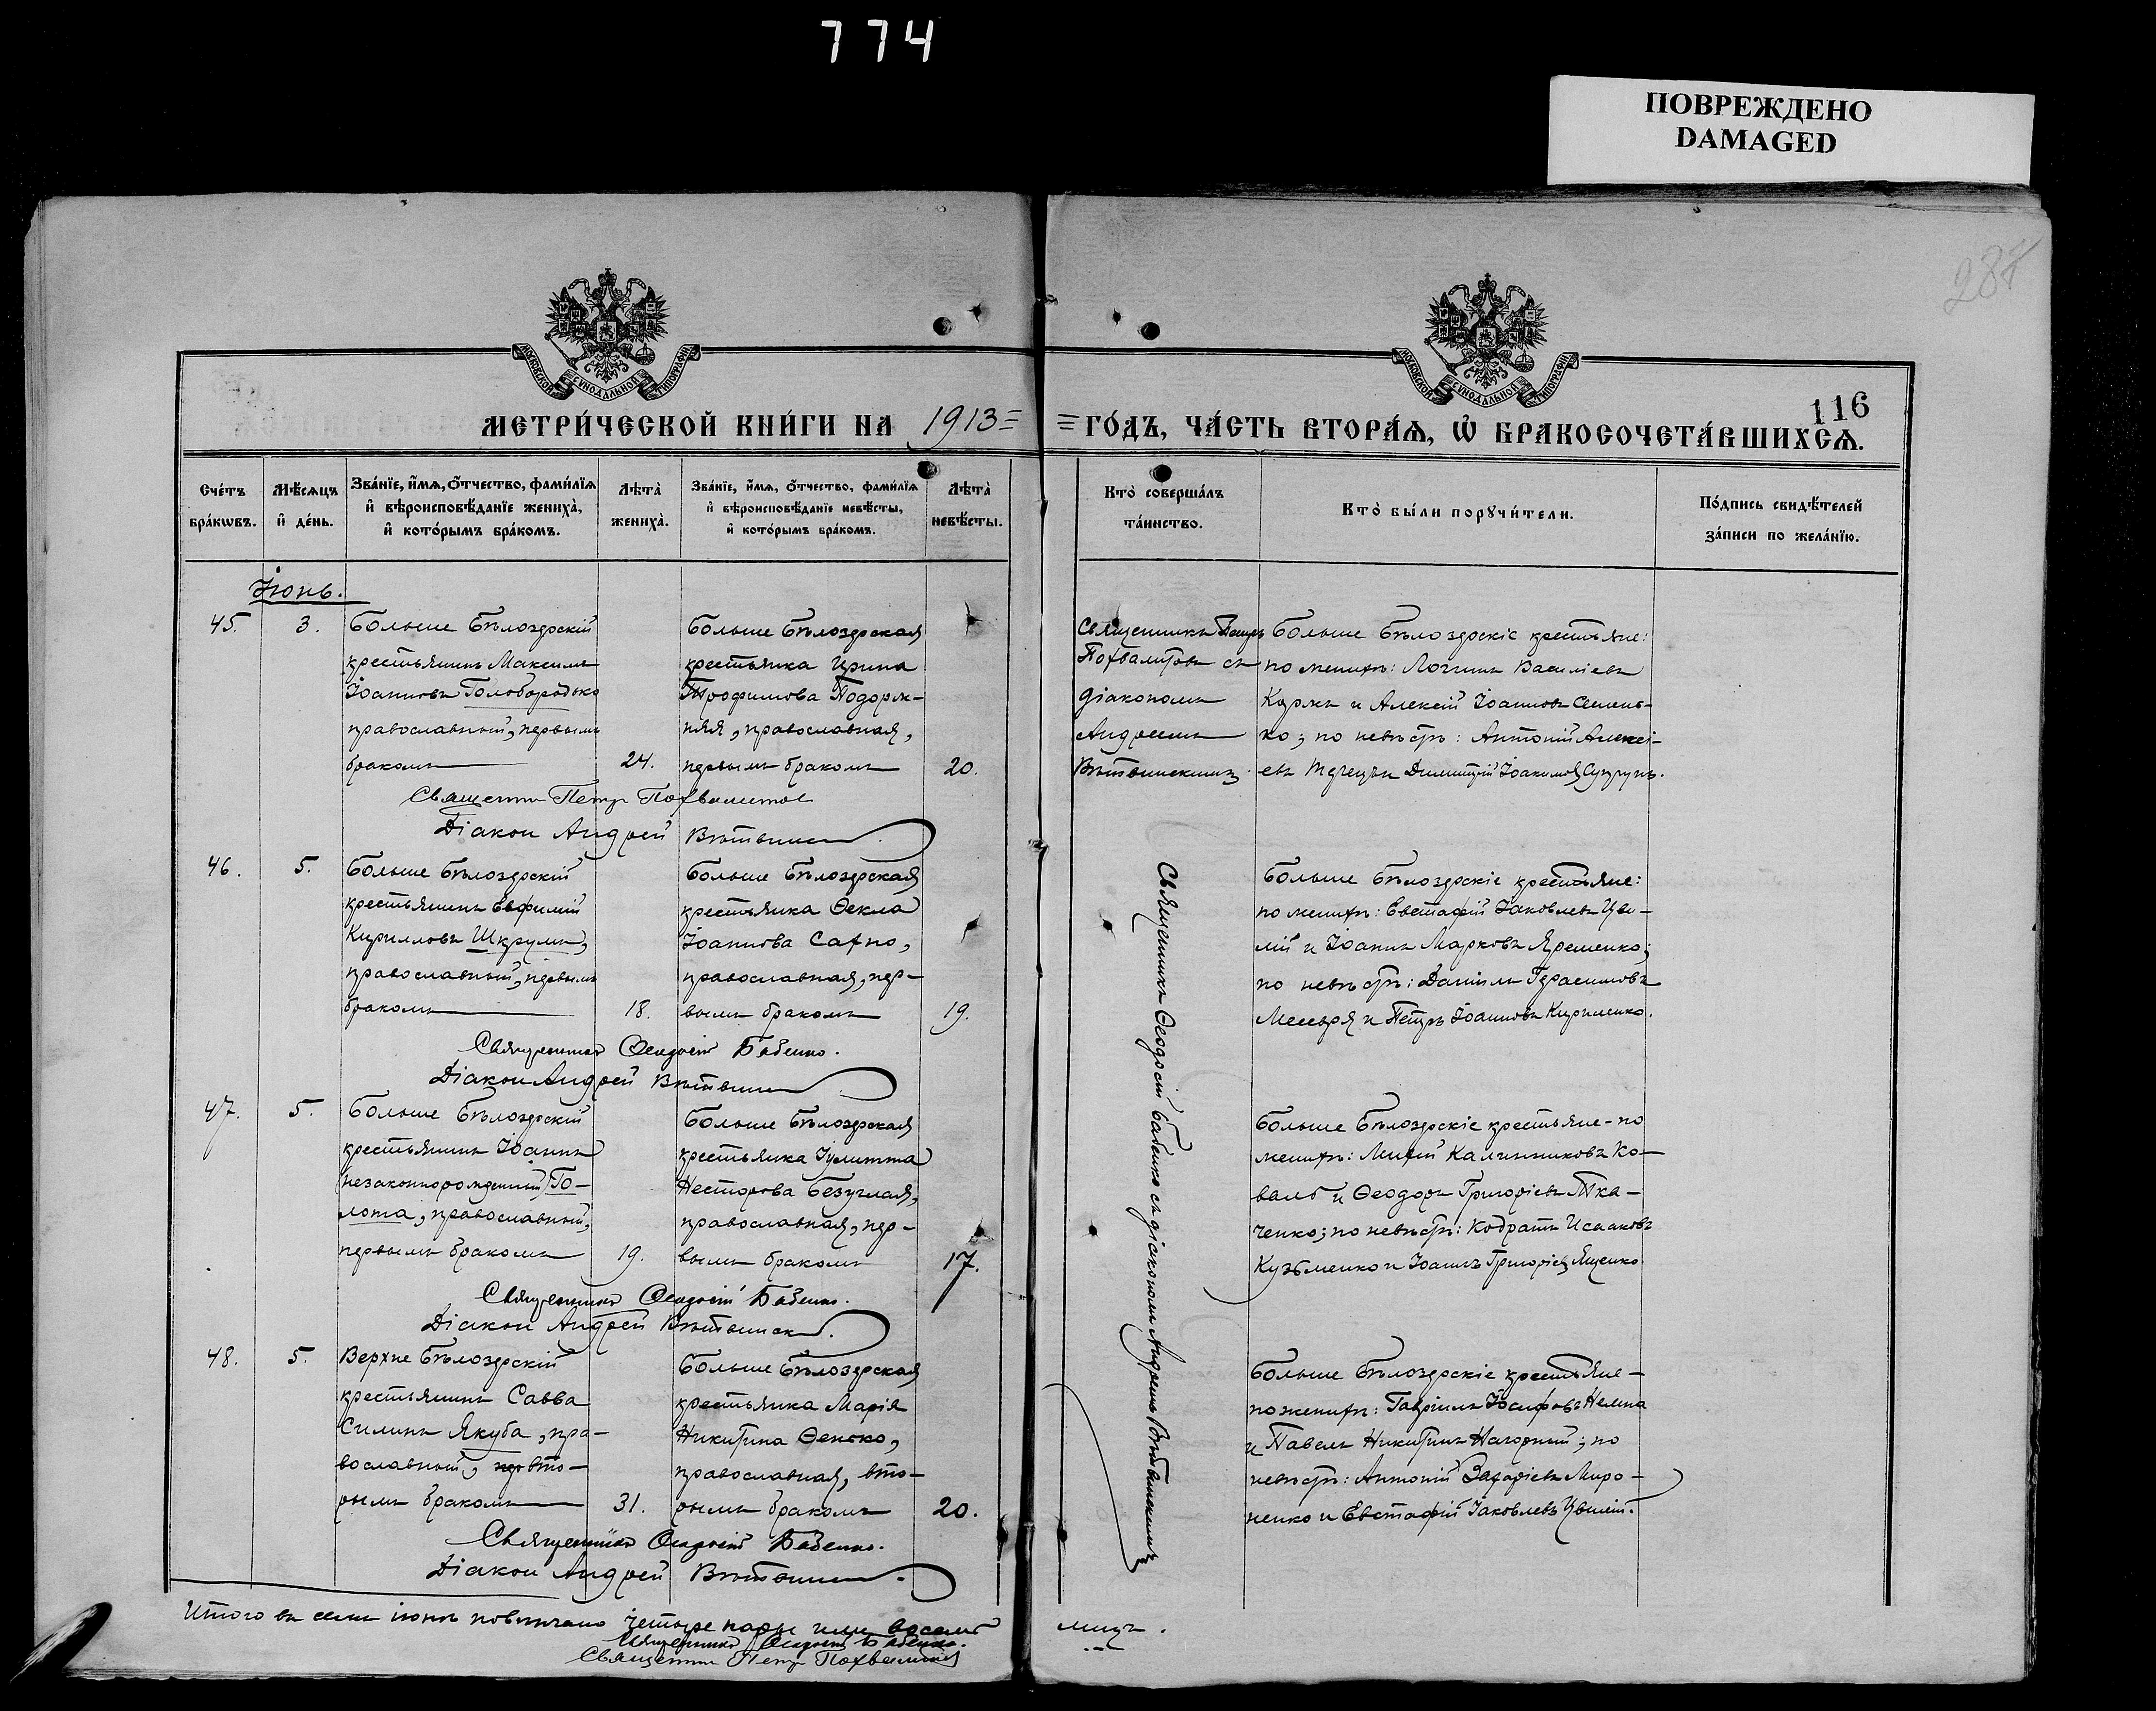 774
ПОВРЕЖДЕНО
DAMAGED
МОСКОВСКОЙ СУНОДАЛЬНОЙ ТИПОГРАФІИ
МОСКОВСКОЙ СУНОДАЛЬНОЙ ТИПОГРАФІИ
116
МЕТРИ́ЧЕСКОЙ КНИ́ГИ НА 1913 =
= ГО́ДЪ, ЧА́СТЬ ВТОРА́Ѧ, Ѡ҆ БРАКОСОЧЕТА́ВШИХСѦ.
Сче́тъ бра́кѡвъ.
Мѣ́сѧцъ и҆ де́нь.
Зва́нїе, и҆́мѧ, ѻ҆́тчество, фами́лїѧ
и҆ вѣроисповѣ́данїе жениха̀,
и҆ кото́рымъ бра́комъ.
Лѣта̀ жениха̀.
Зва́нїе, и҆́мѧ, ѻ҆́тчество, фами́лїѧ
и҆ вѣроисповѣ́данїе невѣ́сты,
и҆ кото́рымъ бра́комъ.
Лѣта̀ невѣ́сты.
Кто̀ соверша́лъ
та́инство.
Кто̀ бы́ли порꙋчи́тели.
По́дпись свидѣ́телей
за́писи по жела́нїю.
Іюнь.
45.
3.
Больше Бѣлозерскій
крестьянинъ Максимъ
Іоанновъ Голобородько
православный, первымъ
бракомъ
24.
Больше Бѣлозерская
крестьянка Ирина
Трофимова Подорж-
няя, православная,
первымъ бракомъ
20.
Священникъ Петръ
Похвалитовъ съ
діакономъ
Андреемъ
Больше Бѣлозерскіе крестьяне:
по женихѣ: Логинъ Василіевъ
Коржъ и Алексій Іоанновъ Семень-
ко; по невѣстѣ: Антоній Алексі-
евъ и Димитрій Іоакимовъ
Діаконъ Андрей
46.
5.
Больше Бѣлозерскій
крестьянинъ Евфимій
Кирилловъ Шкрумъ,
православный, первымъ
бракомъ
18.
Больше Бѣлозерская
крестьянка Ѳекла
Іоаннова Сахно,
православная, пер-
вымъ бракомъ
19.
Больше Бѣлозерскіе крестьяне:
по женихѣ: Евстафій Іаковлевъ Цви-
лій и Іоаннъ Марковъ Яременко;
по невѣстѣ: Даніилъ Герасимовъ
и Петръ Іоанновъ Кириленко.
Священникъ Ѳеодосій Бабенко.
Діаконъ Андрей
Священникъ Ѳеодосій Бабенко съ діакономъ Андреемъ
47.
5.
Больше Бѣлозерскій
крестьянинъ Іоаннъ
незаконнорожденный Го-
лота, православный,
первымъ бракомъ
19.
Больше Бѣлозерская
крестьянка Іулитта
Несторова Безуглая,
православная, пер-
вымъ бракомъ
17.
Больше Бѣлозерскіе крестьяне - по
женихѣ: Михей Калинниковъ Ко-
валь и Ѳеодоръ Григоріевъ Тка-
ченко; по невѣстѣ: Кодратъ Исааковъ
Кузьменко и Іоаннъ Григоріевъ Яценко.
Священникъ Ѳеодосій Бабенко.
Діаконъ Андрей
48.
5.
Верхне Бѣлозерскій
крестьянинъ Савва
Силинъ Якуба, пра-
вославный, вто-
рымъ бракомъ
31.
Больше Бѣлозерская
крестьянка Марія
Никитина Ѳенско,
православная, вто-
рымъ бракомъ
20.
Больше Бѣлозерскіе крестьяне -
по женихѣ: Гавріилъ Іосифовъ
и Павелъ Никитинъ Нагорный; по
невѣстѣ: Антоній Захаріевъ Миро-
ненко и Евстафій Іаковлевъ Цвилій.
Священникъ Ѳеодосій Бабенко.
Діаконъ Андрей
Итого въ семъ іюнѣ повѣнчано четыре пары или восемь лицъ.
Священникъ Ѳеодосій Бабенко.